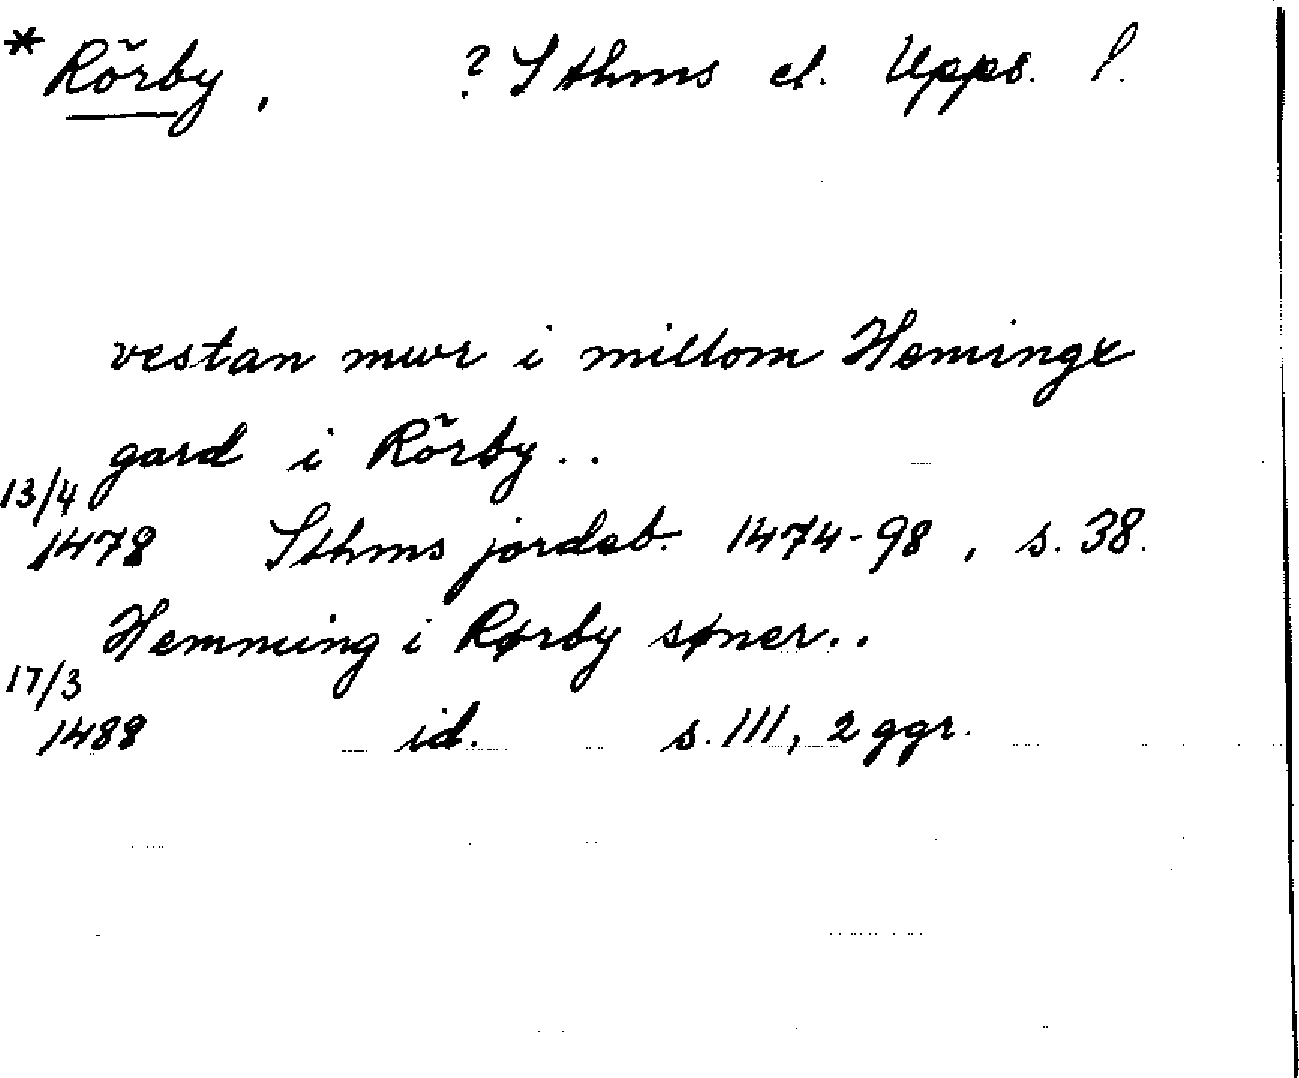 * Rörby, ? Sthms el. Upps. l.
vestan mwr i millom Hemingx
gard i Rörby..
13/4
1478 Sthms jordeb. 1474-98, s. 38.
Hemming i Rørby søner..
17/3
1488 id. s. 111, 2 ggr.